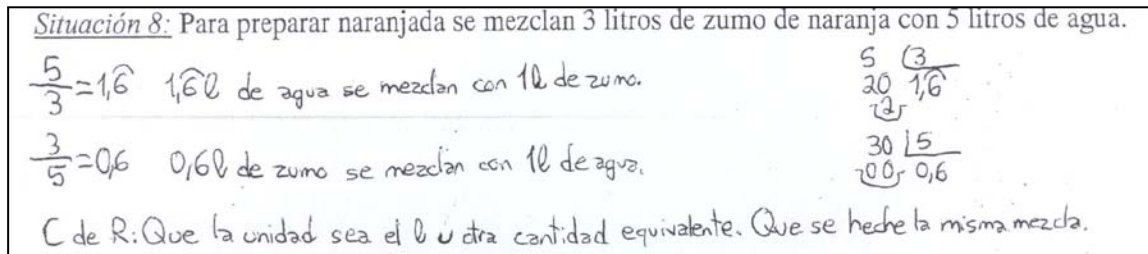 Situación 8: Para preparar naranjada se mezclan 3 litros de zumo de naranja con 5 litros de agua.
5/3 = 1,6̂ 1,6̂ l de agua se mezclan con 1l de zumo.
5 | 3
20 1,6̂
2
3/5 = 0,6 0,6 l de zumo se mezclan con 1l de agua.
30 | 5
00 0,6
C de R: Que la unidad sea el l u otra cantidad equivalente. Que se heche la misma mezcla.